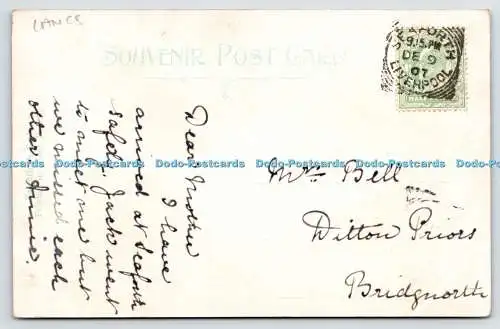 LANCS
SOUVENIR POST CARD
SEAFORTH
9.15 PM
DE 9
07
LIVERPOOL
Dear Mother
I have
arrived at Seaforth
safely. Jack went
to meet me but
we missed each
other. Annie.
Mrs Bell
Ditton Priors
Bridgnorth
Dodo-Postcards Dodo-Postcards Dodo-Postcards Dodo-Postcards Dodo-Postcards Dodo-Postcards